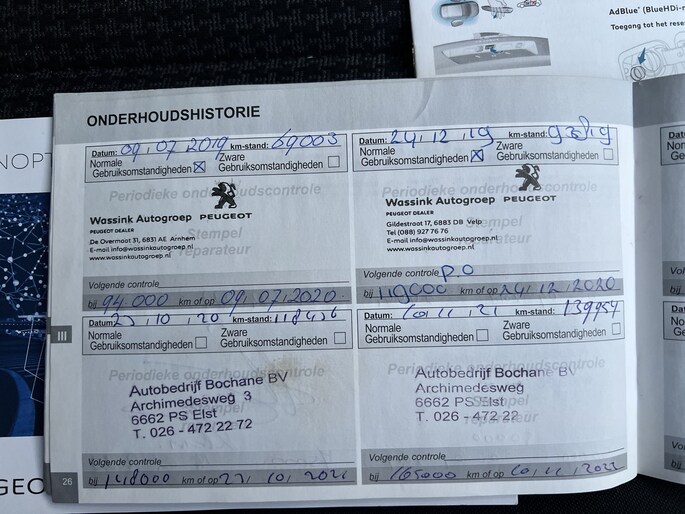 AdBlue® (BlueHDi-
Toegang tot het rese
NOPT
ONDERHOUDSHISTORIE
Datum: 09.07.2019 km-stand: 69003
Normale Gebruiksomstandigheden ☒ Zware Gebruiksomstandigheden ☐
Periodieke onderhoudscontrole
Wassink Autogroep PEUGEOT
PEUGEOT DEALER
Stempel
De Overmaat 31, 6831 AE Arnhem
reparateur
E-mail info@wassinkautogroep.nl
www.wassinkautogroep.nl
Volgende controle
bij 94.000 km of op 09.07.2020
Datum: 24.12.19 km-stand:
Normale Gebruiksomstandigheden ☒ Zware Gebruiksomstandigheden ☐
Periodieke onderhoudscontrole
PEUGEOT
Wassink Autogroep
PEUGEOT DEALER
Gildestraat 17, 6883 DB Velp
Stempel
Tel (088) 927 76 76
reparateur
E-mail info@wassinkautogroep.nl
www.wassinkautogroep.nl
Volgende controle P.O
bij 119000 km of op 24.12.2020
III
Datum: 23.10.20 km-stand: 118436
Normale Gebruiksomstandigheden ☐ Zware Gebruiksomstandigheden ☐
Periodieke onderhoudscontrole
Autobedrijf Bochane BV
Archimedesweg 3
6662 PS Elst
T. 026 - 472 22 72
Volgende controle
bij 148000 km of op 23.10.2021
Datum: 10.11.21 km-stand: 139954
Normale Gebruiksomstandigheden ☐ Zware Gebruiksomstandigheden ☐
Periodieke onderhoudscontrole
Autobedrijf Bochane BV
Archimedesweg
Stempel
6662 PS Elst
reparateur
T. 026 - 472 22
Volgende controle
bij 165000 km of op 10.11.2022
26
GEO